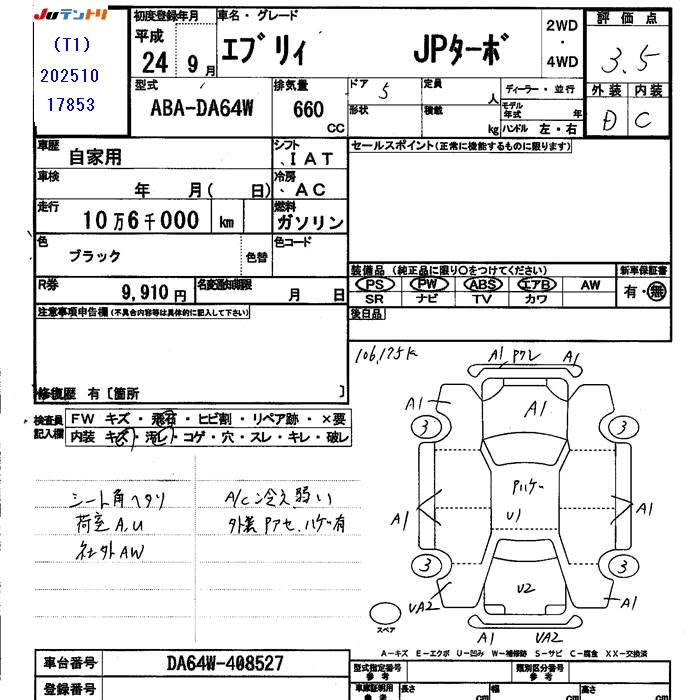 Juテントリ
(T1)
202510
17853
初度登録年月
平成
24年 9月
車名・グレード
エブリィ JPターボ
2WD
・
4WD
評価点
3.5
外装 内装
D C
型式
ABA-DA64W
排気量
660
CC
ドア 5
定員
人
形状
積載
kg
ディーラー・並行
モデル年式 年
ハンドル 左・右
車歴
自家用
シフト
IAT
車検
年 月( 日)
冷房
AC
走行
10万6千000 km
燃料
ガソリン
色
ブラック
色替
色コード
R券
9,910円
名変通知期限
月 日
セールスポイント(正常に機能するものに限ります)
装備品 (純正品に限り○をつけてください)
PS PW ABS エアB AW
SR ナビ TV カワ
新車保証書
有・無
後日品
注意事項申告欄(不具合内容等は具体的に記入して下さい)
修復歴 有[箇所 ]
検査員
記入欄
FW キズ・飛石・ヒビ割・リペア跡・×要
内装 キズ・汚レ・コゲ・穴・スレ・キレ・破レ
シート角ヘタリ
荷室A,U
社外AW
A/C冷え弱い
外装Pアセ、ハゲ有
106,175K
A1 Pワレ A1
A1 A1
3 3
Pハゲ
U1
A1 A1
3 3
U2
UA2 A1
A1 UA2
スペア
A-キズ E-エクボ U-凹み W-補修跡 S-サビ C-腐食 XX-交換済
車台番号
DA64W-408527
登録番号
型式指定番号
参考
類別区分番号
参考
車庫証明用
参考
長さ cm
幅 cm
高さ cm